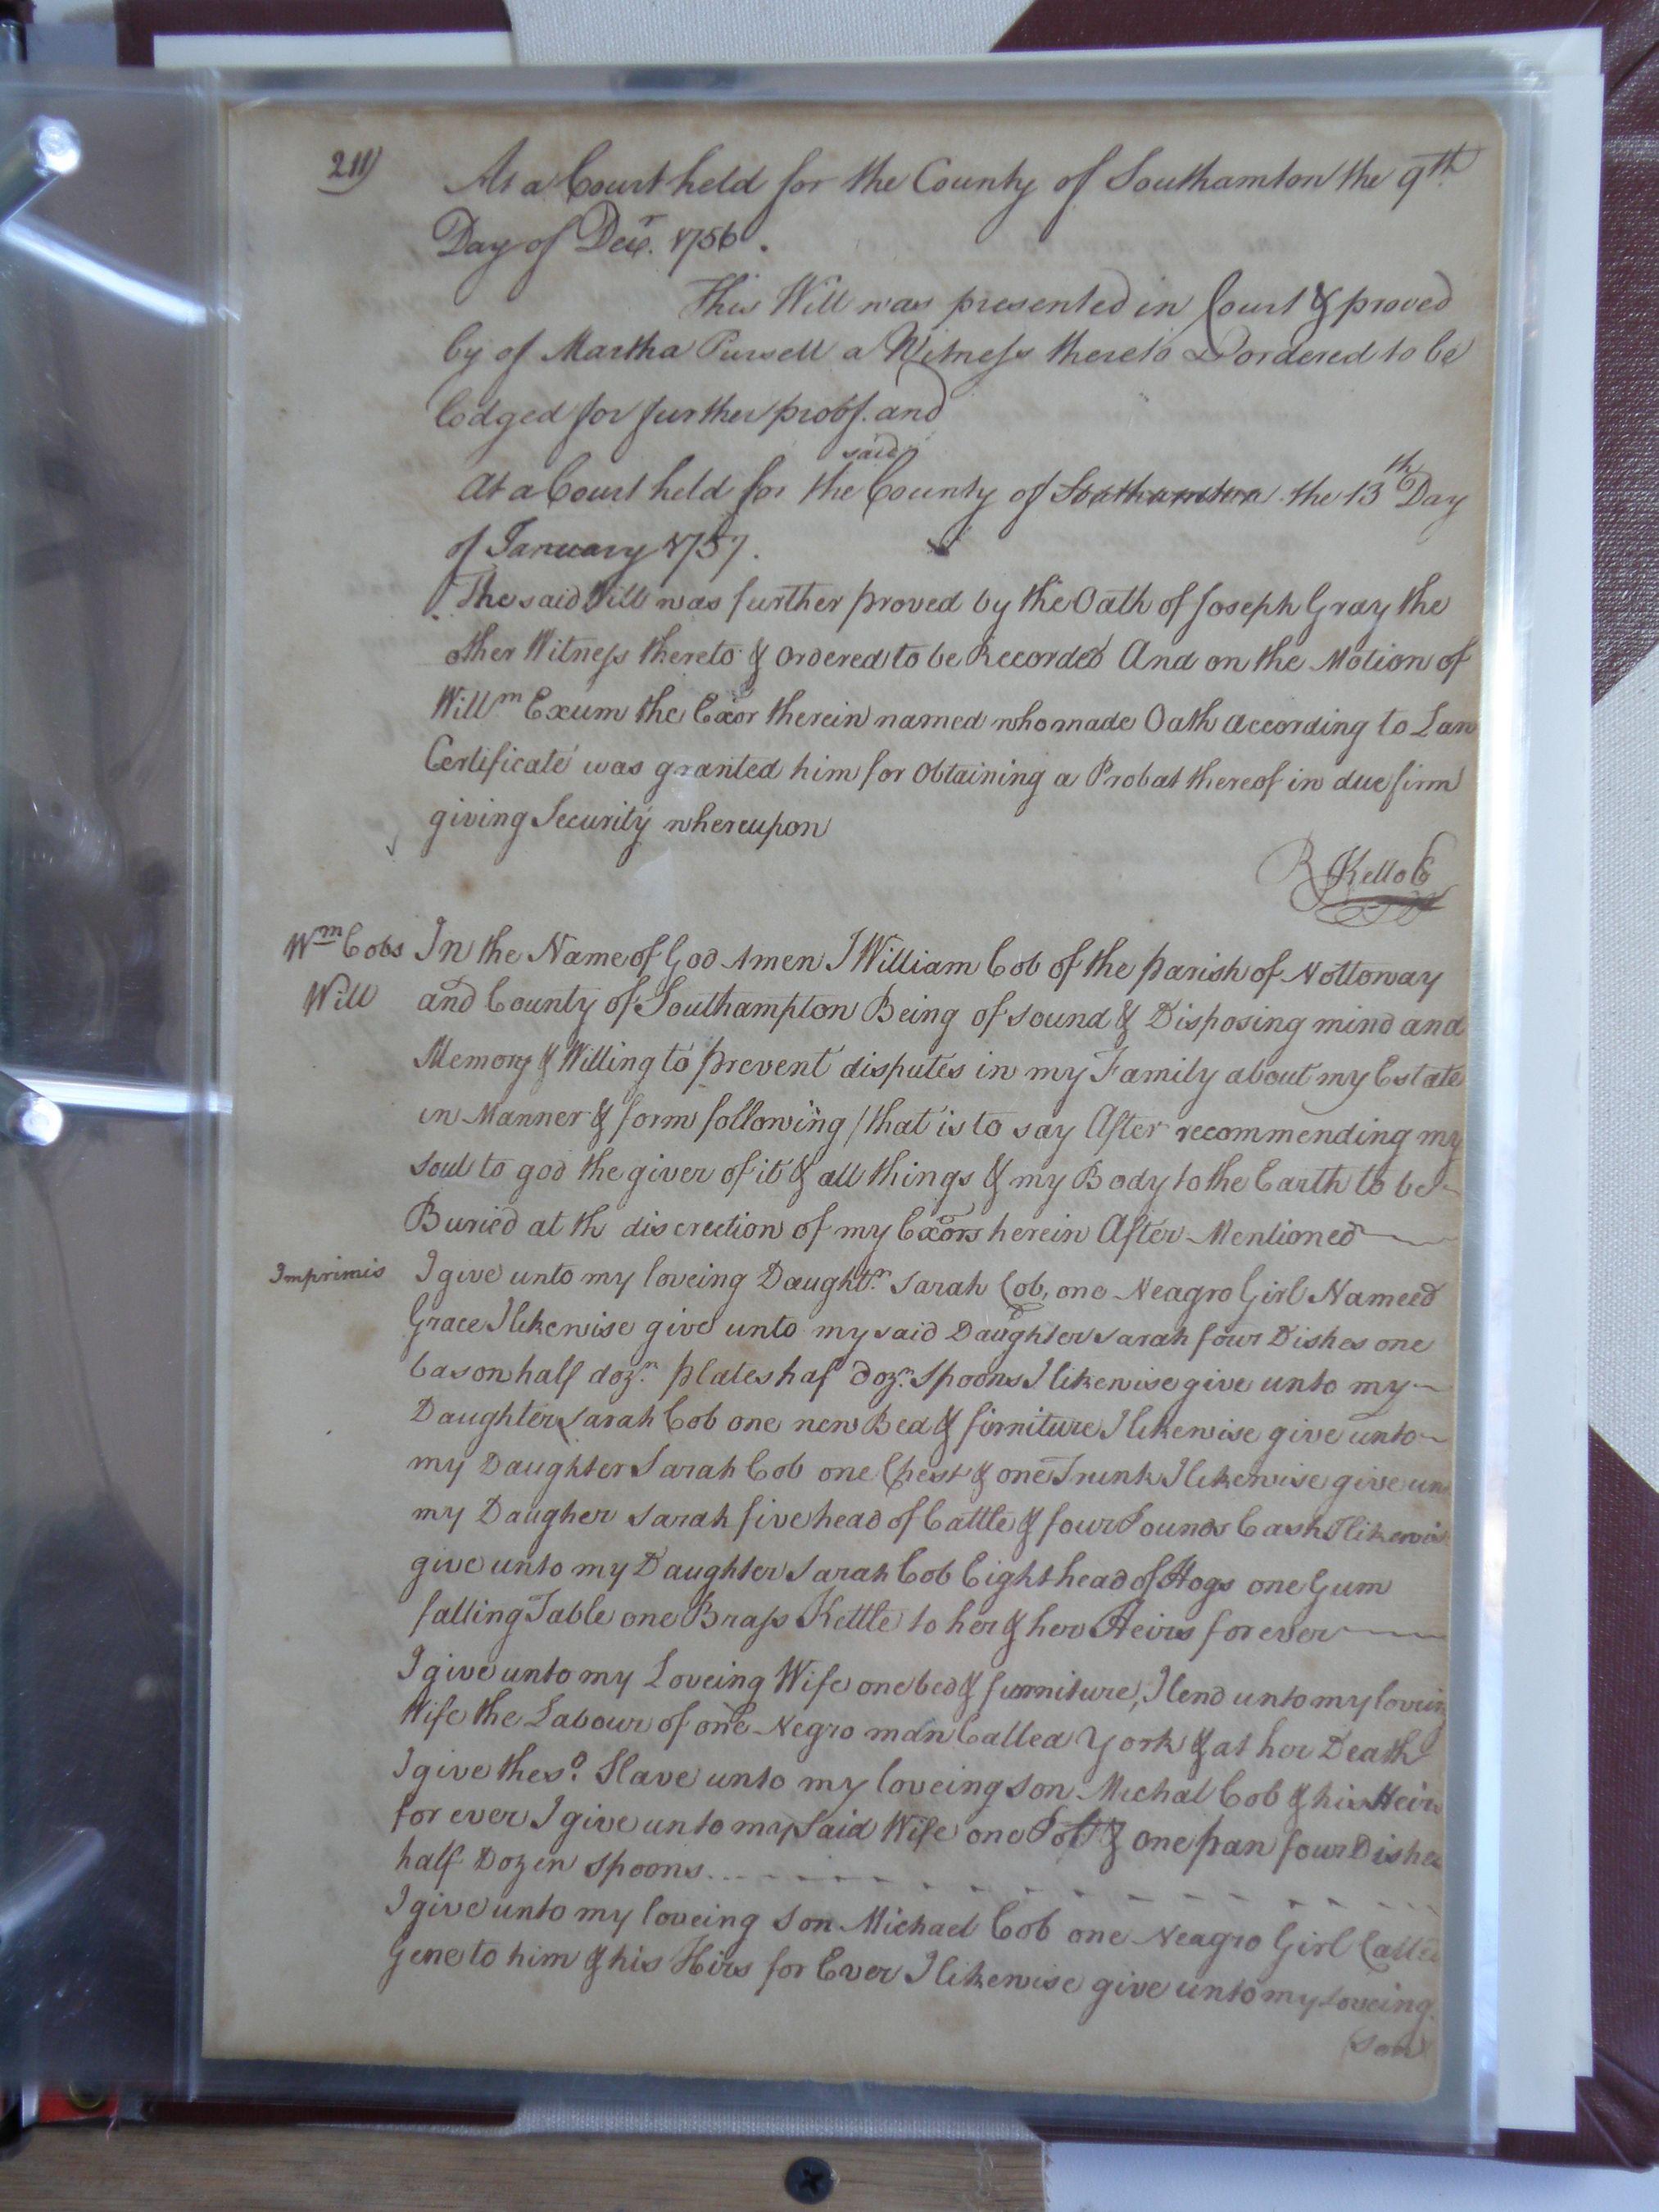 211)
At a Court held for the County of Southamton the 9th
Day of Decr. 1756.
This Will was presented in Court & proved
by of Martha Pursell a Witness thereto & ordered to be
lodged for further proof. and
said
At a Court held for the County of Southamton the 13th Day
of January 1757.
The said Will was further proved by the Oath of Joseph Gray the
other Witness thereto & Ordered to be Recorded And on the Motion of
Willm Exum the Exor therein named who made Oath according to Law
Certificate was granted him for Obtaining a Probat thereof in due firm
giving Security whereupon
R Kello C
Wm Cobs In the Name of God Amen I William Cob of the parish of Nottoway
Will and County of Southampton Being of sound & Disposing mind and
Memory & Willing to prevent disputes in my Family about my Estate
in Manner & form following / that is to say After recommending my
soul to god the giver of it & all things & my Body to the Earth to be
Buried at th discrection of my Exors herein After Mentioned
Imprimis I give unto my loveing Daughtr. Sarah Cob, one Neagro Girl Nameed
Grace I likewise give unto my said Daughter Sarah four Dishes one
bason half dozn. plates haf dozn. Spoons I likewise give unto my
Daughter Sarah Cob one new Bed & firniture I likewise give unto
my Daughter Sarah Cob one Chest & one Trunk I likewise give un
my Daugher Sarah five head of Cattle & four Pounds Cash I likewis
give unto my Daughter Sarah Cob Eight head of Hogs one Gum
falling Table one Brass Kettle to her & her Heirs for ever
I give unto my Loveing Wife one bed & furniture, I lend unto my lovein
Wife the Labour of one Negro man Called York & at her Death
I give the sd. Slave unto my loveing son Michal Cob & his Heirs
for ever I give unto my Said Wife one Pott & one pan four Dishes
half Dozen spoons
I give unto my loveing Son Michael Cob one Neagro Girl Called
Gene to him & his Hirs for Ever I likewise give unto my loveing
son